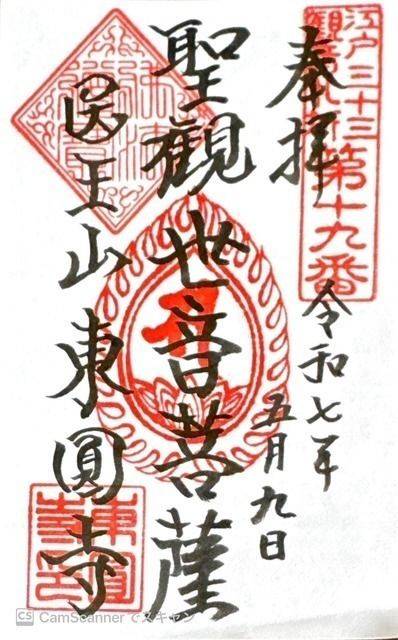 江戸三十三
観音札所
第十九番
奉拝
令和七年
五月九日
聖觀世音菩薩
医王山東圓寺
東圓寺印
CS CamScanner でスキャン